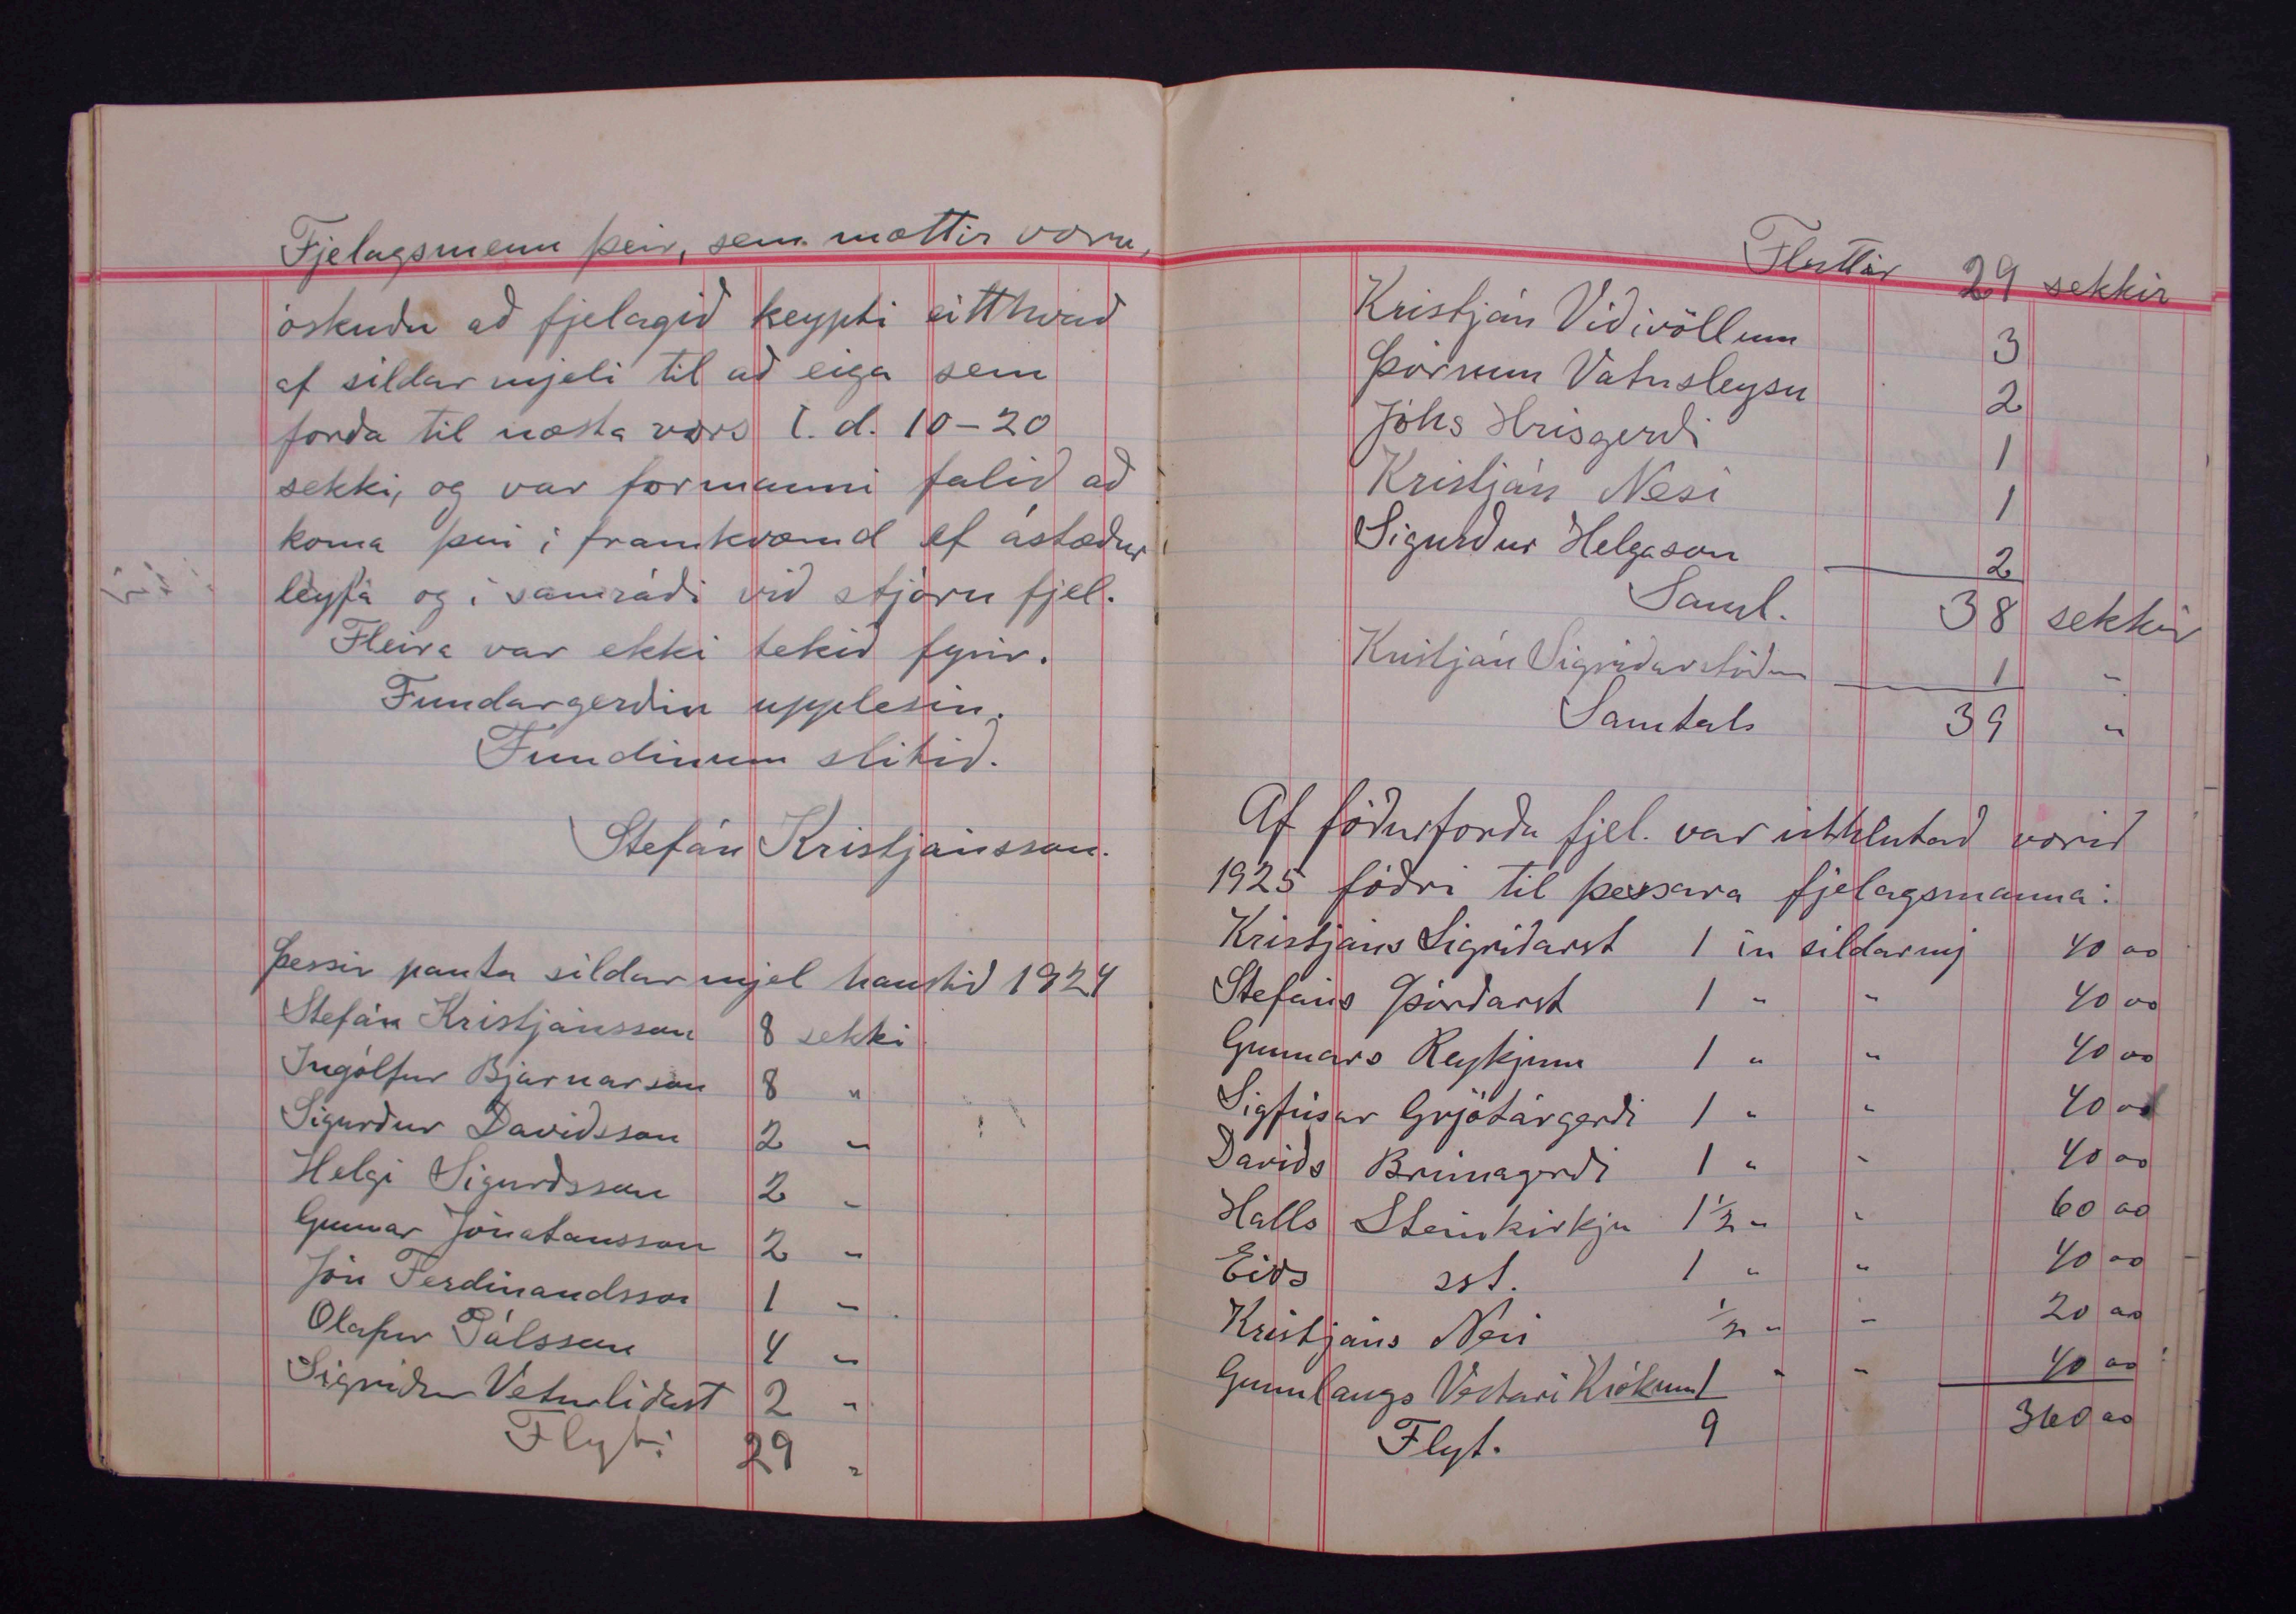 Fjelagsmenn þeir, sem mættir voru,
óskuðu að fjelagið keypti eitthvað
af síldarmjeli til að eiga sem
forða til næsta vors t.d. 10-20
sekki, og var formanni falið að
koma því í framkvæmd ef ástæður
leyfa og í samráði við stjórn fjel.
Fleira var ekki tekið fyrir.
Fundargerðin upplesin.
Fundinum slitið.
Stefán Kristjánsson.
Þessir panta síldarmjel haustið 1924
Stefán Kristjánsson 8 sekki
Ingólfur Bjarnarson 8 "
Sigurður Davíðsson 2 "
Helgi Sigurðsson 2 "
Gunnar Jónatansson 2 "
Jón Ferdinandsson 1 "
Olafur Pálsson 4 "
Sigriður Veturliðast 2 "
Flyt: 29 "
Fluttir 29 sekkir
Kristján Víðivöllum 3
Þórunn Vatnsleysu 2
Jóhs Hrisgerði 1
Kristján Nesi 1
Sigurður Helgason 2
Saml. 38 sekkir
Kristján Sigriðarstöðum 1 "
Samtals 39 "
Af fóðurforða fjel. var úthlutað vorið
1925 fóðri til þessara fjelagsmanna:
Kristjáns Sigriðarst 1 tn síldarmj 40 00
Stefáns Þórðarst 1 " " 40 00
Gunnars Reykjum 1 " " 40 00
Sigfúsar Grjótárgerði 1 " " 40 00
Davíðs Brúnagerði 1 " " 40 00
Halls Steinkirkju 1 1/2 " " 60 00
Eiðs sst. 1 " " 40 00
Kristjáns Nesi 1/2 " " 20 00
Gunnlaugs Vestari Krókum 1 " " 40 00
Flyt. 9 360 00